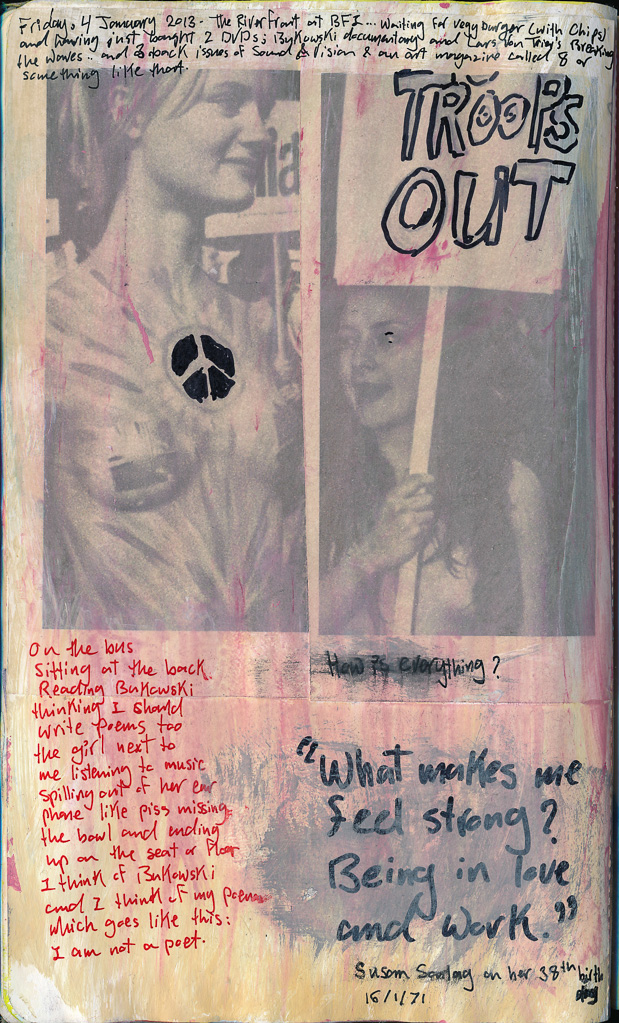 Friday, 4 January 2013 - the Riverfront at BFI... waiting for vegyburger (with chips)
and having just bought 2 DVDs; Bukowski documentary and Lars Von Trier's Breaking
the Waves.. and 3 back issues of Sound & Vision & an art magazine called 8 or
something like that.
TROOPS
OUT
On the bus
Sitting at the back
Reading Bukowski
thinking I should
write poems too
the girl next to
me listening to music
spilling out of her ear
phone like piss missing
the bowl and ending
up on the seat or floor
I think of Bukowski
and I think of my poem
which goes like this:
I am not a poet.
How is everything?
"What makes me
feel strong?
Being in love
and work."
Susan Sontag on her 38th birth
day
16/1/71